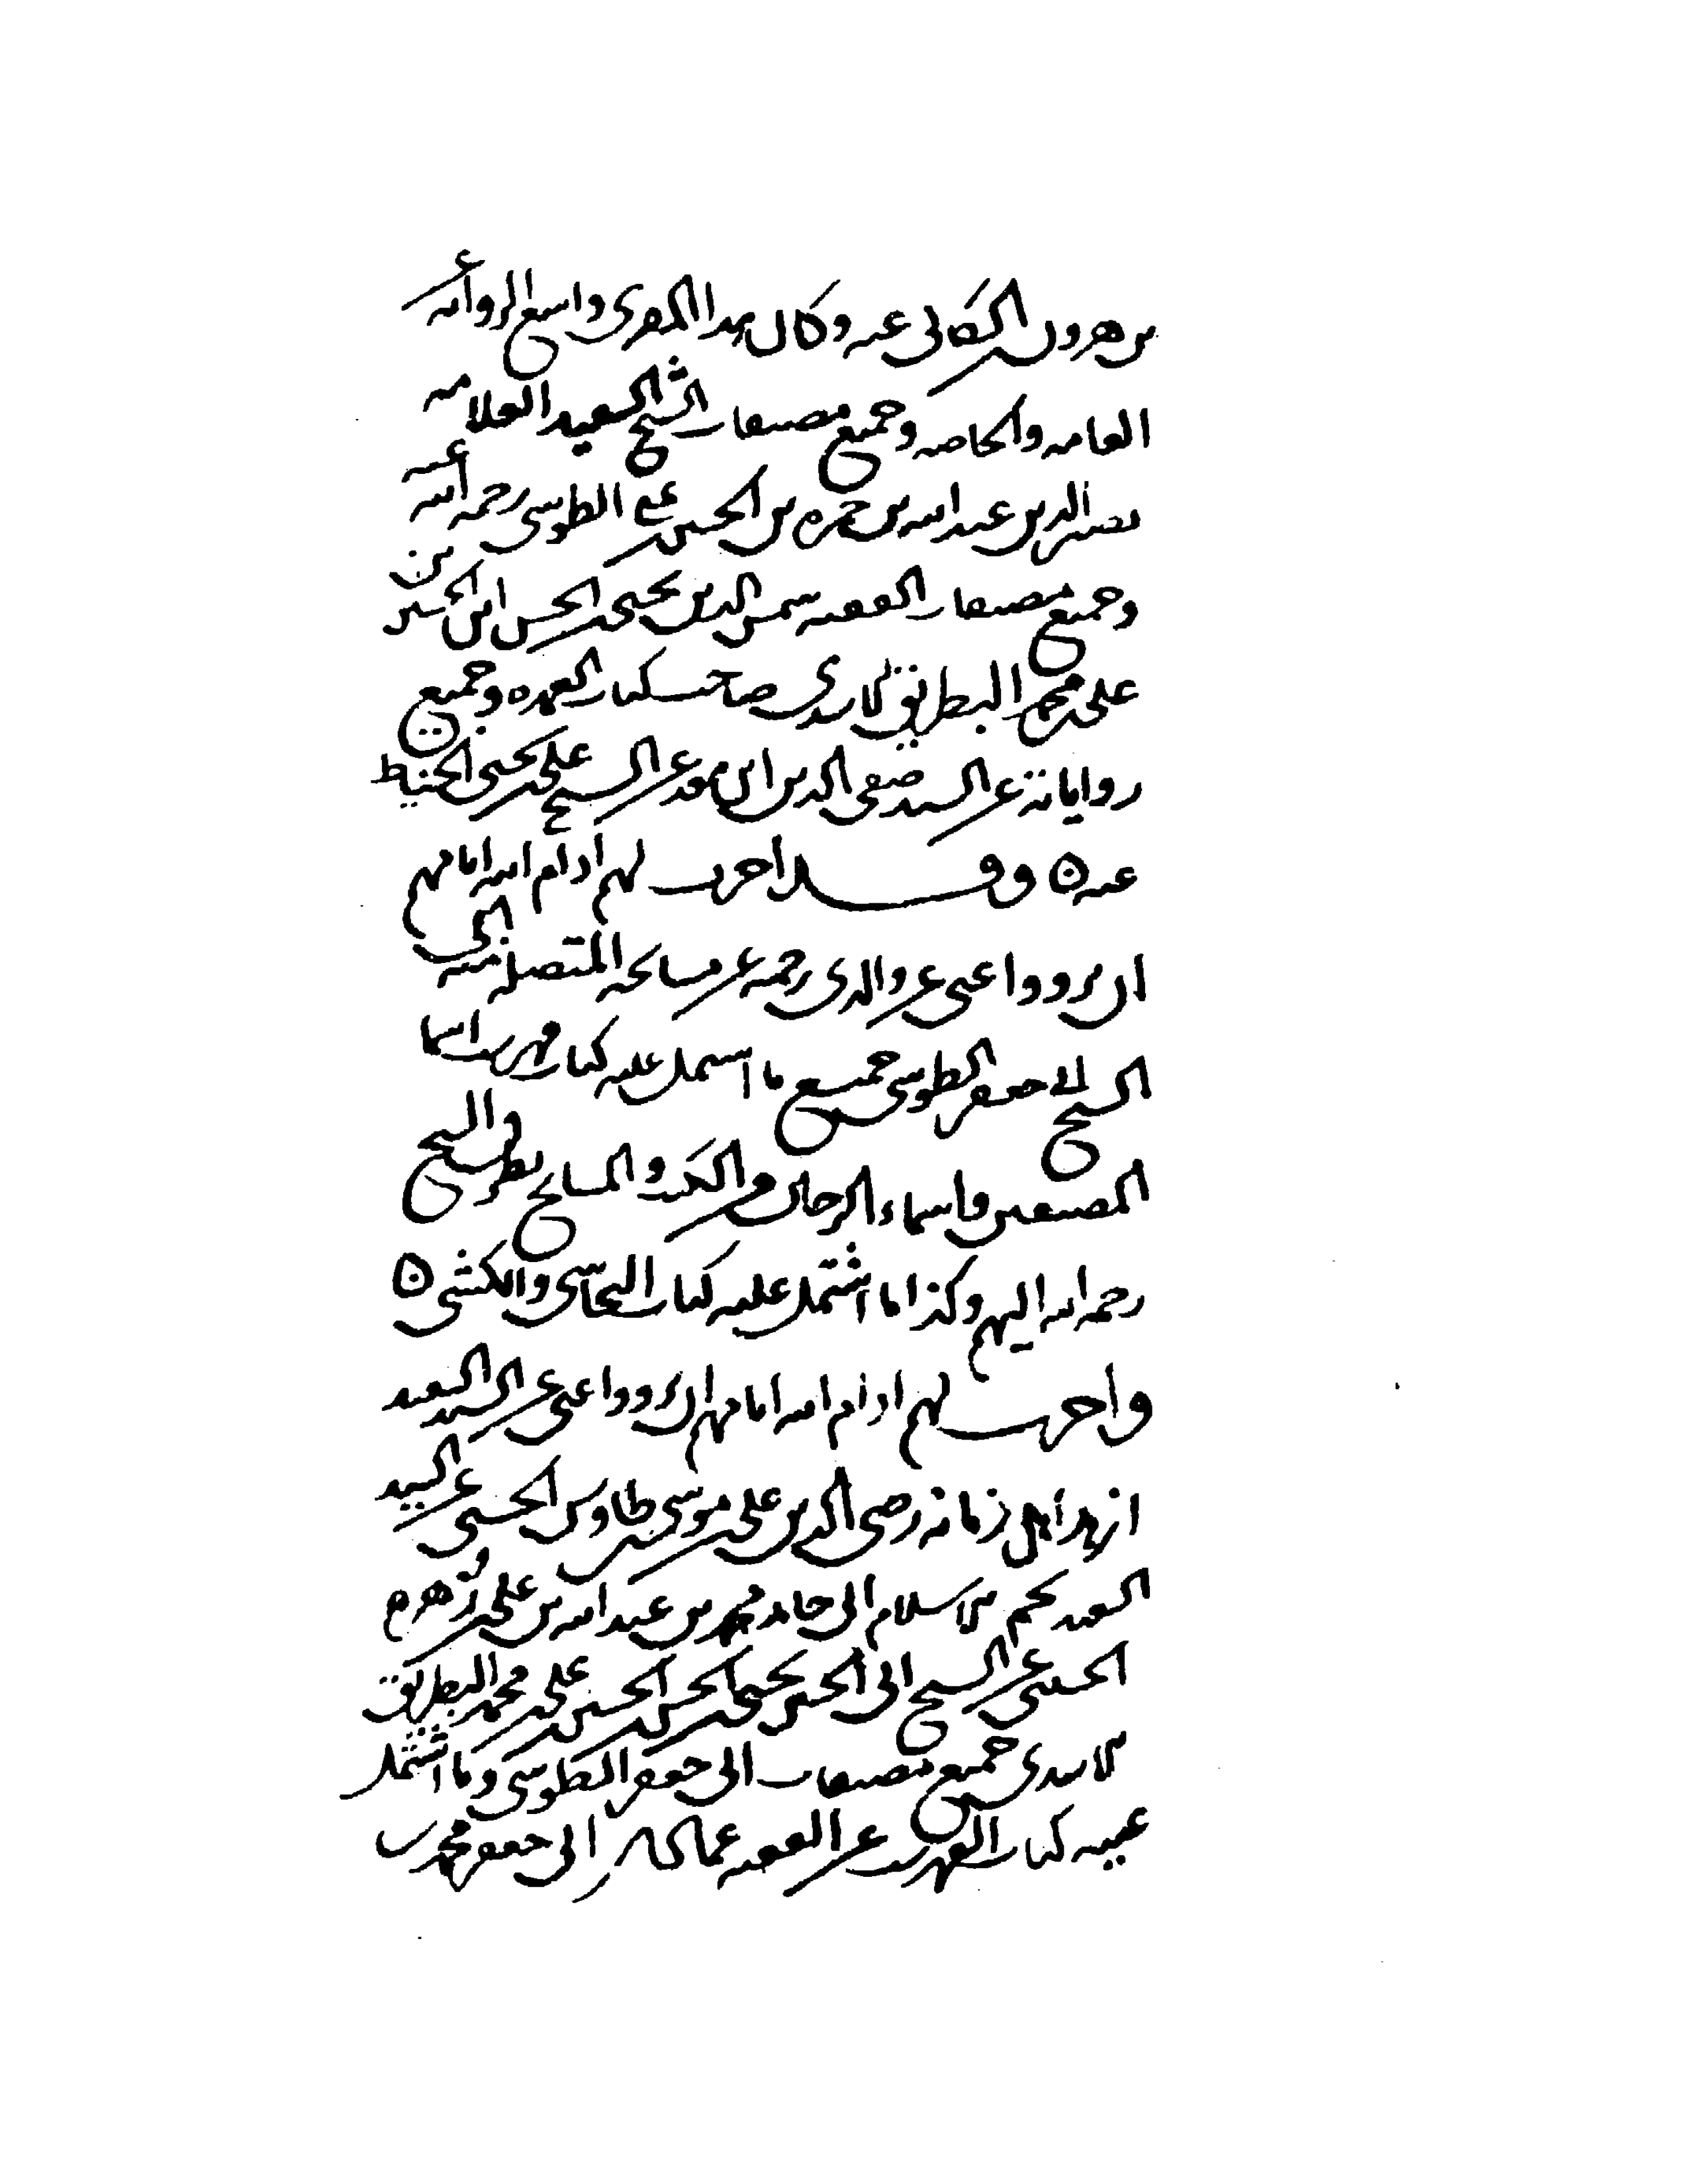 بن هرون الكتاني عنه وكان هذا المقرى واسع الرواية عن
العامه والخاصه وجميع مصنفات الشيخ السعيد العلامه
نصير الدين عبد الله بن حمزه بن الحسن بن علي الطوسي رحمه الله عنه
وجميع مصنفات الفقيه شمس الدين يحيى بن الحسن ابن الحسين بن
علي بن محمد البطريق الاسدى صاحب كتاب العمده وجميع
رواياته عن السيد صفي الدين ابن معد عن الشيخ علي بن يحيى الخياط
عنه وقد اجزت لهم ادام الله ايامهم
ان يرووا عني عن والدى رحمه عن مشايخه المتصله منه الى
الشيخ ابي جعفر الطوسي جميع ما اشتمل عليه كتاب فهرست اسما
المصنفين واسماء الرجال والكتب والمشايخ بطرق الشيخ
رحمه الله اليهم وكذا ما اشتمل عليه كتاب النجاشي والكشي
واجزت لهم ادام الله ايامهم ان يرووا عني عن السيد السعيد
ازهد اهل زمانه رضى الدين علي بن موسى بن طاوس الحسني عن السيد
السعيد نجم الاسلام ابي حامد محمد بن عبد الله بن علي بن زهره
الحسيني عن الشيخ ابي الحسين يحيى بن الحسن بن الحسين بن علي بن محمد البطريق
الاسدى جميع مصنفات ابي جعفر الطوسي وما اشتمل
عليه كتاب الفهرست عن الفقيه عماد الدين ابي جعفر محمد بن